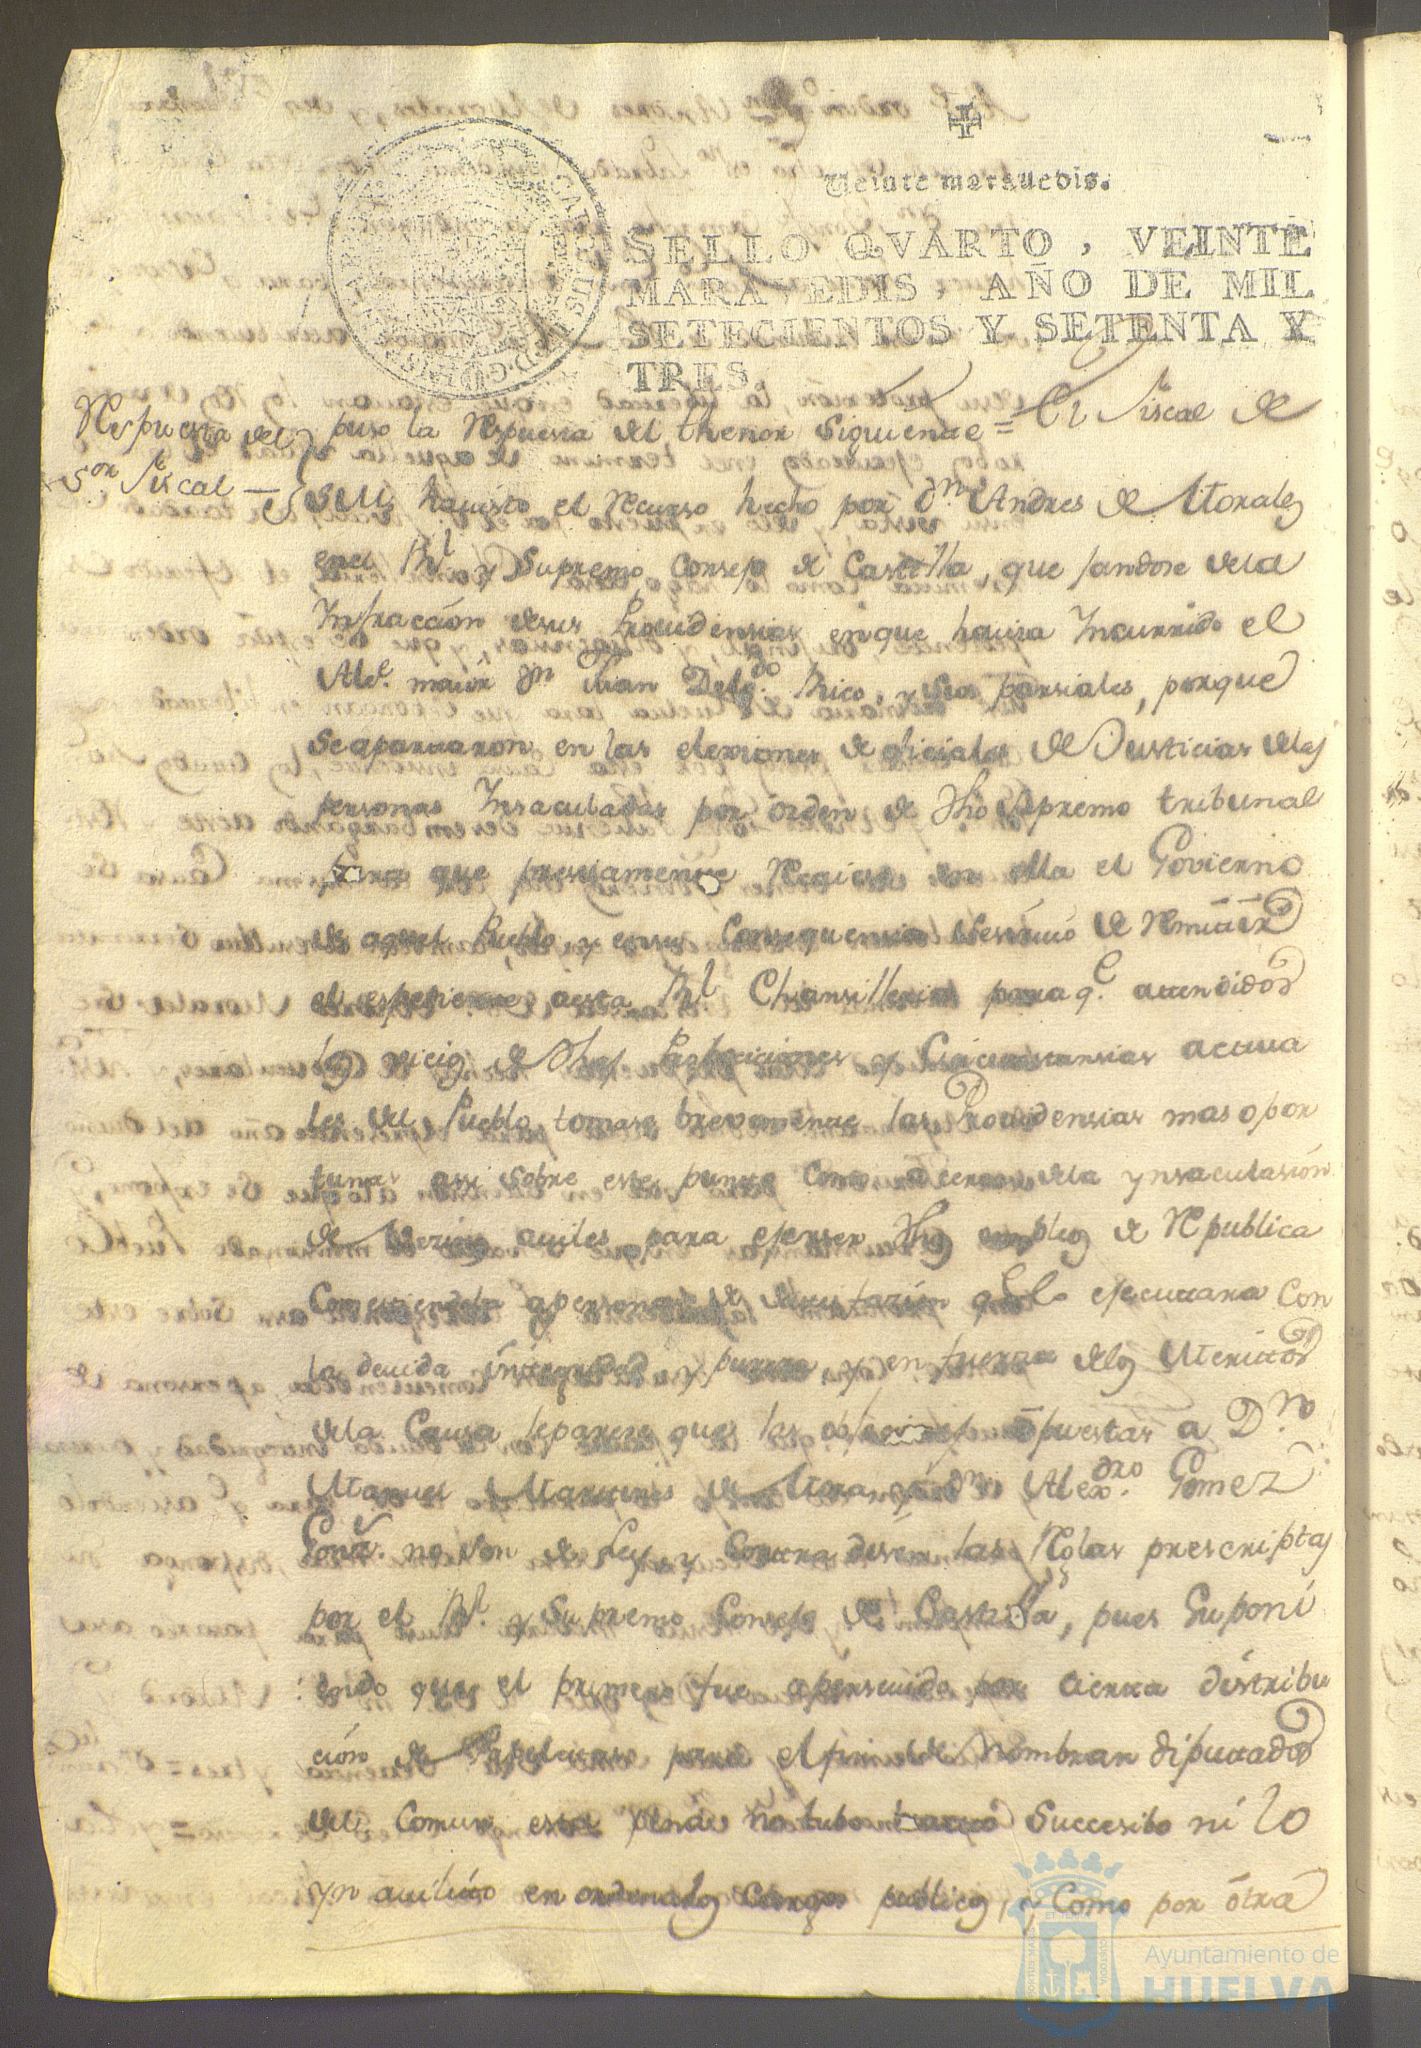 Veinte maravedis.
SELLO QVARTO, VEINTE
MARAVEDIS, AÑO DE MIL
SETECIENTOS Y SETENTA Y
TRES.
Respuesta del
Sor. Fiscal
puso la Respuesta del thenor siguiente = El Fiscal de
SM. havisto el Recurso hecho por Dn. Andres de Morales
enel Rl. y Supremo Consejo de Castilla, que jandose dela
Infraccion desus Providensias enque havia Incurrido el
Alce. maior Dn. Juan Delgdo. Rico, y sus parsiales, porque
se apartaron en las elexiones de oficiales de Justicias delas
personas Insaculadas por orden de dho Supremo tribunal
para que presisamente Recaiese en ella el Govierno
de aquel Pueblo, y ensus Consequensia sesirvió de Remitir
el espediente aesta Rl. Chansilleria paraqe. attendidos
los vicios de dhas y Circunstansias actua
les del Pueblo tomase brevemente las Providensias mas opor
tunas assi sobre este punto como acerca dela ynsaculasion
de Vezinos aviles para ejerser dhos empleos de Republica
Cometiendola apersona de qe. lo ejecutara con
la devida integridad y puresa, y en fuerza delos Meritos
dela Causa leparese que las objeciones opuestas a Dn.
Manuel Martinis de Mora, y a Dn. Alexdro. Gomez
no son de Ley y Contra disen las Reglas prescriptas
por el Rl. y Supremo Consejo de Castilla, pues Suponi
endo que el primero fue apersevido por cierta distribu
ción de Papeletas para el fin de Nombrar diputados
del Comun esta pena no tubo tracto Succesibo ni lo
yn avilitó en ordenalos Cargos publicos, y Como por otra
Ayuntamiento de
HUELVA